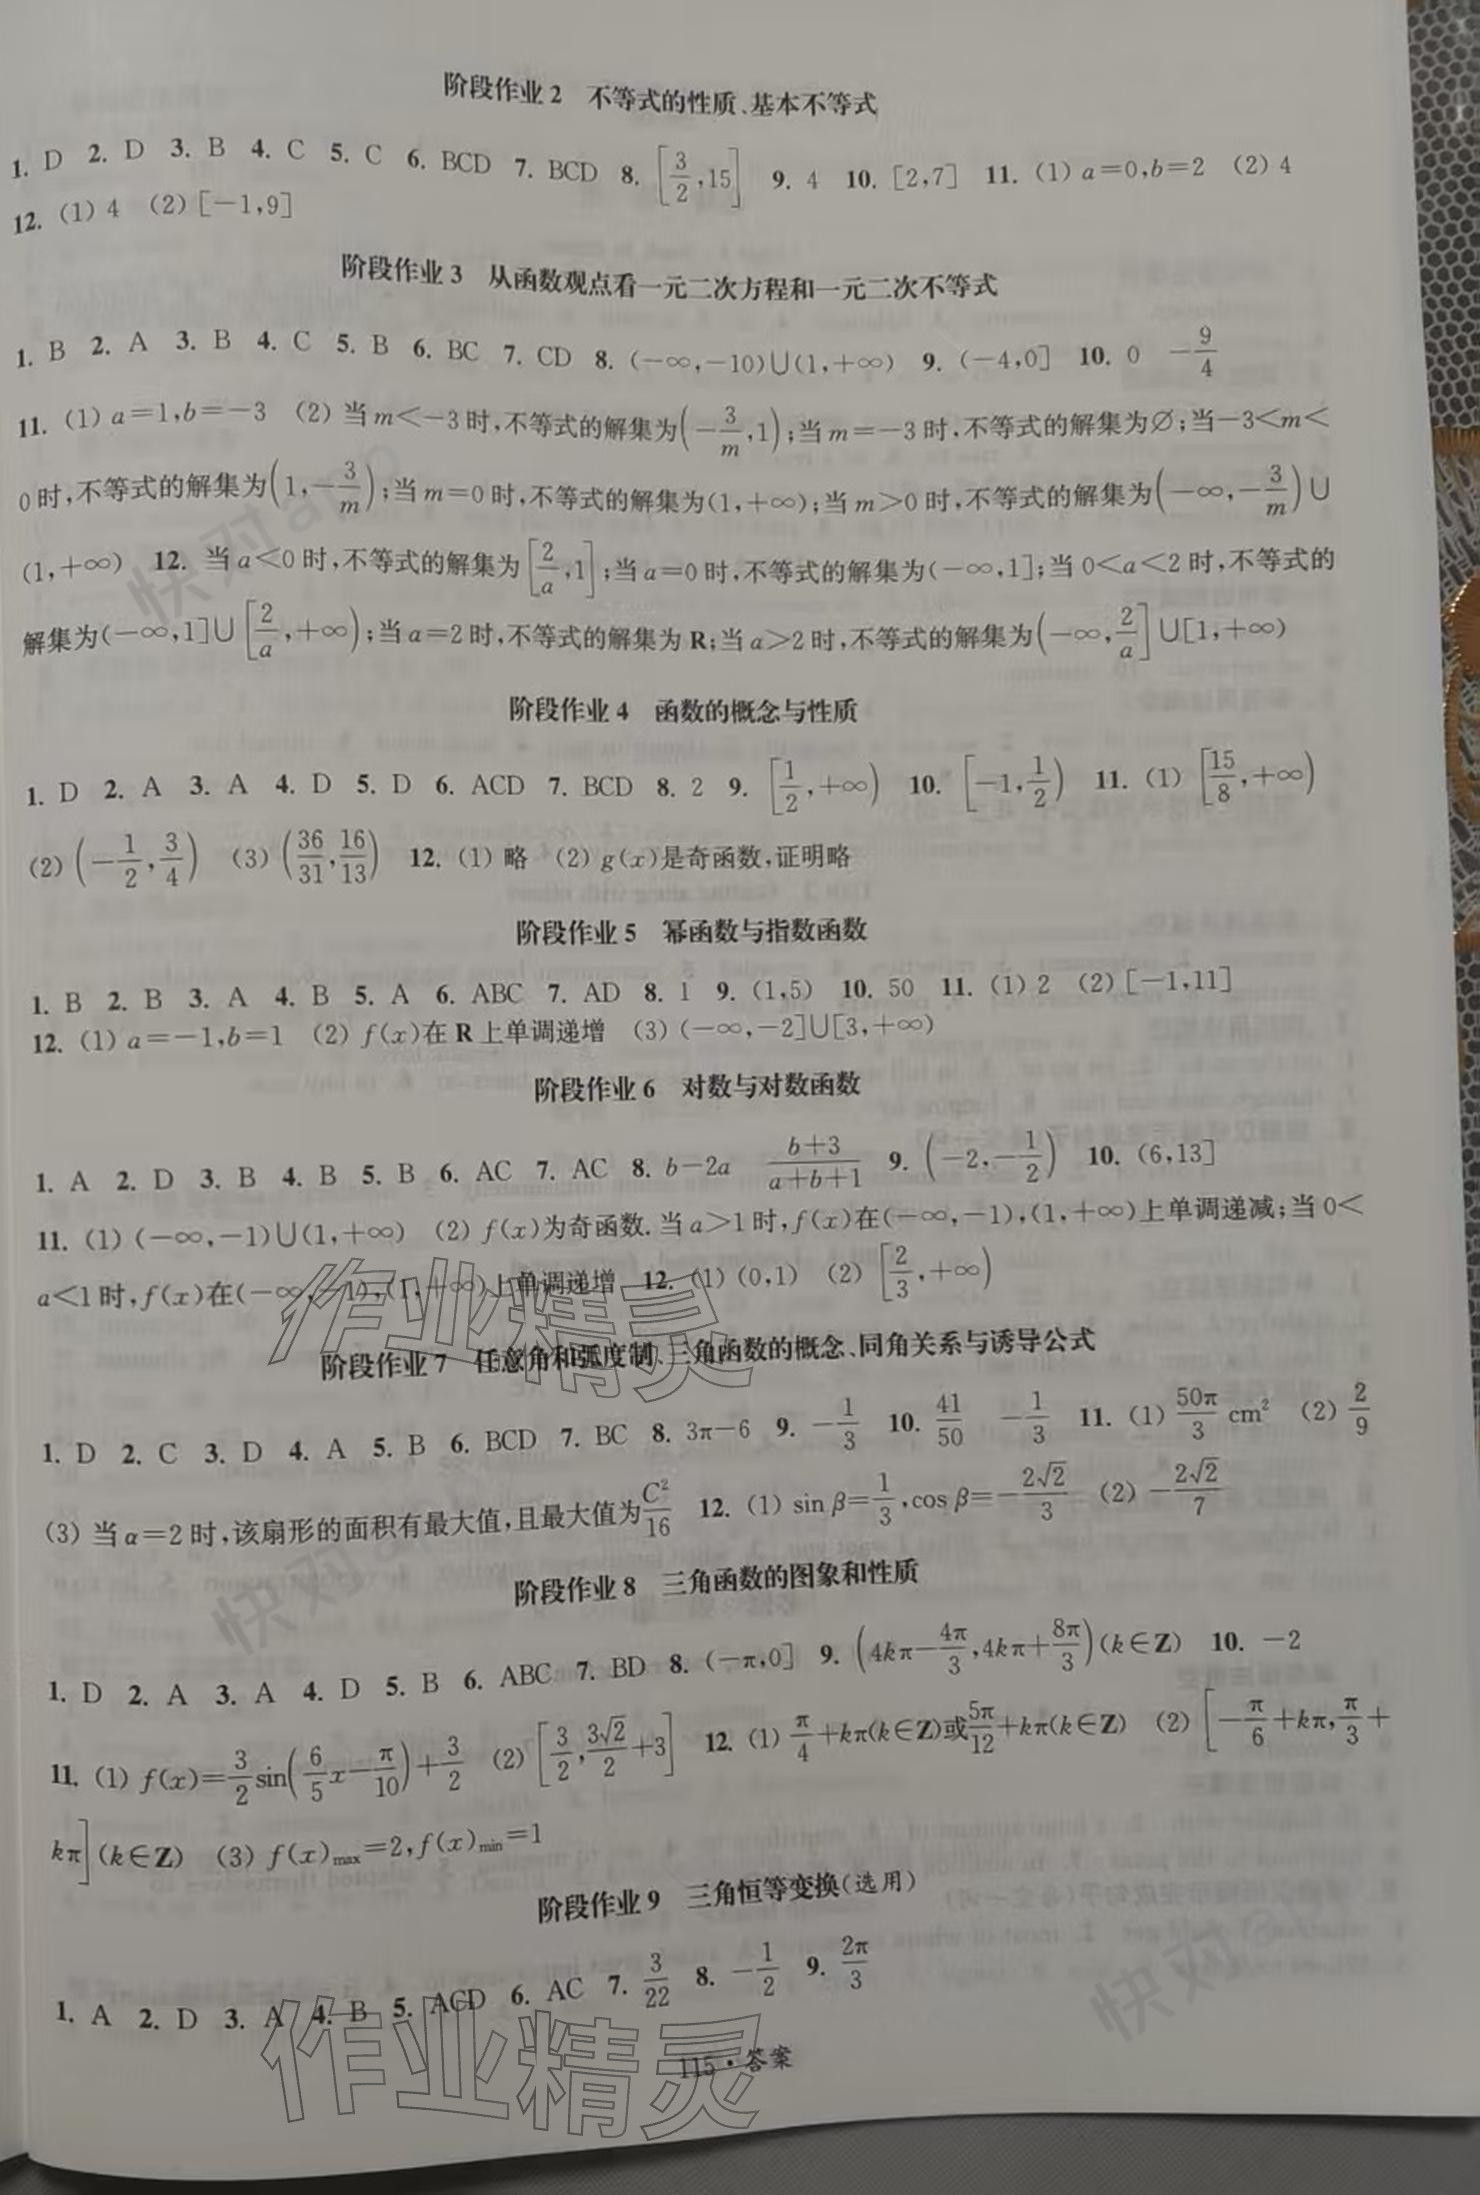 阶段作业2 不等式的性质、基本不等式
1. D 2. D 3. B 4. C 5. C 6. BCD 7. BCD 8. [3/2,15] 9. 4 10. [2,7] 11. (1) a=0,b=2 (2) 4
12. (1) 4 (2) [-1,9]
阶段作业3 从函数观点看一元二次方程和一元二次不等式
1. B 2. A 3. B 4. C 5. B 6. BC 7. CD 8. (-∞,-10)∪(1,+∞) 9. (-4,0] 10. 0 -9/4
11. (1) a=1,b=-3 (2) 当m<-3时,不等式的解集为(-3/m,1);当m=-3时,不等式的解集为∅;当-3<m<
0时,不等式的解集为(1,-3/m);当m=0时,不等式的解集为(1,+∞);当m>0时,不等式的解集为(-∞,-3/m)∪
(1,+∞) 12. 当a<0时,不等式的解集为[2/a,1];当a=0时,不等式的解集为(-∞,1];当0<a<2时,不等式的
解集为(-∞,1]∪[2/a,+∞);当a=2时,不等式的解集为R;当a>2时,不等式的解集为(-∞,2/a]∪[1,+∞)
阶段作业4 函数的概念与性质
1. D 2. A 3. A 4. D 5. D 6. ACD 7. BCD 8. 2 9. [1/2,+∞) 10. [-1,1/2) 11. (1) [15/8,+∞)
(2) (-1/2,3/4) (3) (36/31,16/13) 12. (1) 略 (2) g(x)是奇函数,证明略
阶段作业5 幂函数与指数函数
1. B 2. B 3. A 4. B 5. A 6. ABC 7. AD 8. 1 9. (1,5) 10. 50 11. (1) 2 (2) [-1,11]
12. (1) a=-1,b=1 (2) f(x)在R上单调递增 (3) (-∞,-2]∪[3,+∞)
阶段作业6 对数与对数函数
1. A 2. D 3. B 4. B 5. B 6. AC 7. AC 8. b-2a (b+3)/(a+b+1) 9. (-2,-1/2) 10. (6,13]
11. (1) (-∞,-1)∪(1,+∞) (2) f(x)为奇函数.当a>1时,f(x)在(-∞,-1),(1,+∞)上单调递减;当0<
a<1时,f(x)在(-∞,-1),(1,+∞)上单调递增 12. (1) (0,1) (2) [2/3,+∞)
阶段作业7 任意角和弧度制、三角函数的概念、同角关系与诱导公式
1. D 2. C 3. D 4. A 5. B 6. BCD 7. BC 8. 3π-6 9. -1/3 10. 41/50 -1/3 11. (1) 50π/3 cm² (2) 2/9
(3) 当α=2时,该扇形的面积有最大值,且最大值为C²/16 12. (1) sin β=1/3,cos β=-2√2/3 (2) -2√2/7
阶段作业8 三角函数的图象和性质
1. D 2. A 3. A 4. D 5. B 6. ABC 7. BD 8. (-π,0] 9. (4kπ-4π/3,4kπ+8π/3)(k∈Z) 10. -2
11. (1) f(x)=3/2sin(6/5x-π/10)+3/2 (2) [3/2,3√2/2+3] 12. (1) π/4+kπ(k∈Z)或5π/12+kπ(k∈Z) (2) [-π/6+kπ,π/3+
kπ](k∈Z) (3) f(x)max=2,f(x)min=1
阶段作业9 三角恒等变换(选用)
1. A 2. D 3. A 4. B 5. ACD 6. AC 7. 3/22 8. -1/2 9. 2π/3
115·答案
快对app
作业精灵
快对app
快对app
作业精灵